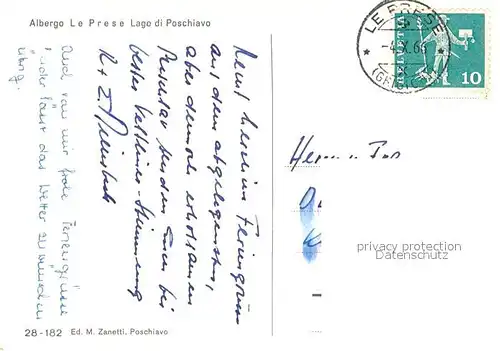 Albergo Le Prese Lago di Poschiavo
LE PRESE
-4.X.66
(GRIGIONI)
HELVETIA
10
Recht herzliche Feriengrüsse
aus dem abgelegenen,
aber dennoch
Puschlav senden Euch bei
bester Veltliner-Stimmung
R + E
Auch von mir frohe Feriengrüsse
lässt das Wetter zu wünschen
übrig.
Herr u Frau
privacy protection
Datenschutz
28-182 Ed. M. Zanetti, Poschiavo